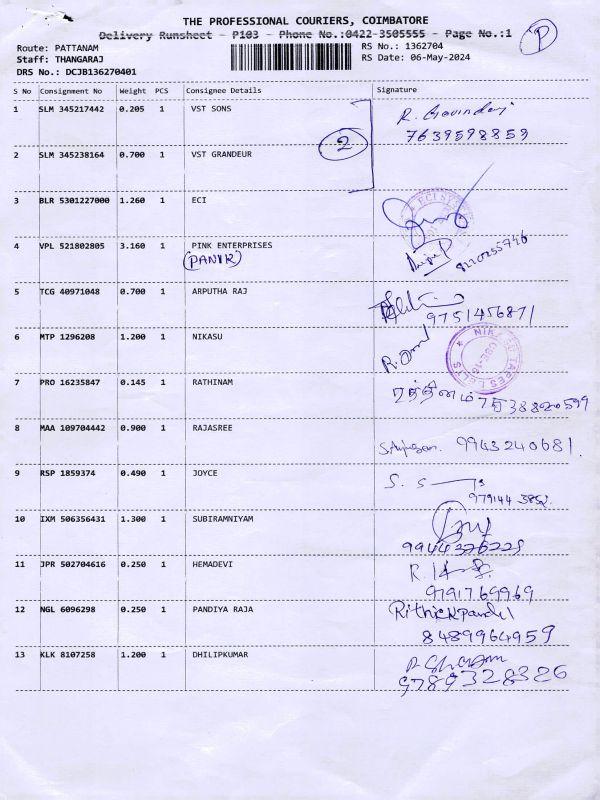 THE PROFESSIONAL COURIERS, COIMBATORE
Delivery Runsheet - P103 - Phone No.:0422-3505555 - Page No.:1
P
Route: PATTANAM
RS No.: 1362704
Staff: THANGARAJ
RS Date: 06-May-2024
DRS No.: DCJB136270401
S No Consignment No Weight PCS Consignee Details Signature
1 SLM 345217442 0.205 1 VST SONS
7639598859
2
2 SLM 345238164 0.700 1 VST GRANDEUR
3 BLR 5301227000 1.260 1 ECI
4 VPL 521802805 3.160 1 PINK ENTERPRISES
(PANIR)
8220255746
5 TCG 40971048 0.700 1 ARPUTHA RAJ
9751456871
6 MTP 1296208 1.200 1 NIKASU
7 PRO 16235847 0.145 1 RATHINAM
ரத்தினம்
8 MAA 109704442 0.900 1 RAJASREE
9943240681.
9 RSP 1859374 0.490 1 JOYCE
S. S
10 IXM 506356431 1.300 1 SUBIRAMNIYAM
11 JPR 502704616 0.250 1 HEMADEVI
9791769969
12 NGL 6096298 0.250 1 PANDIYA RAJA
8489964959
13 KLK 8107258 1.200 1 DHILIPKUMAR
9789328326